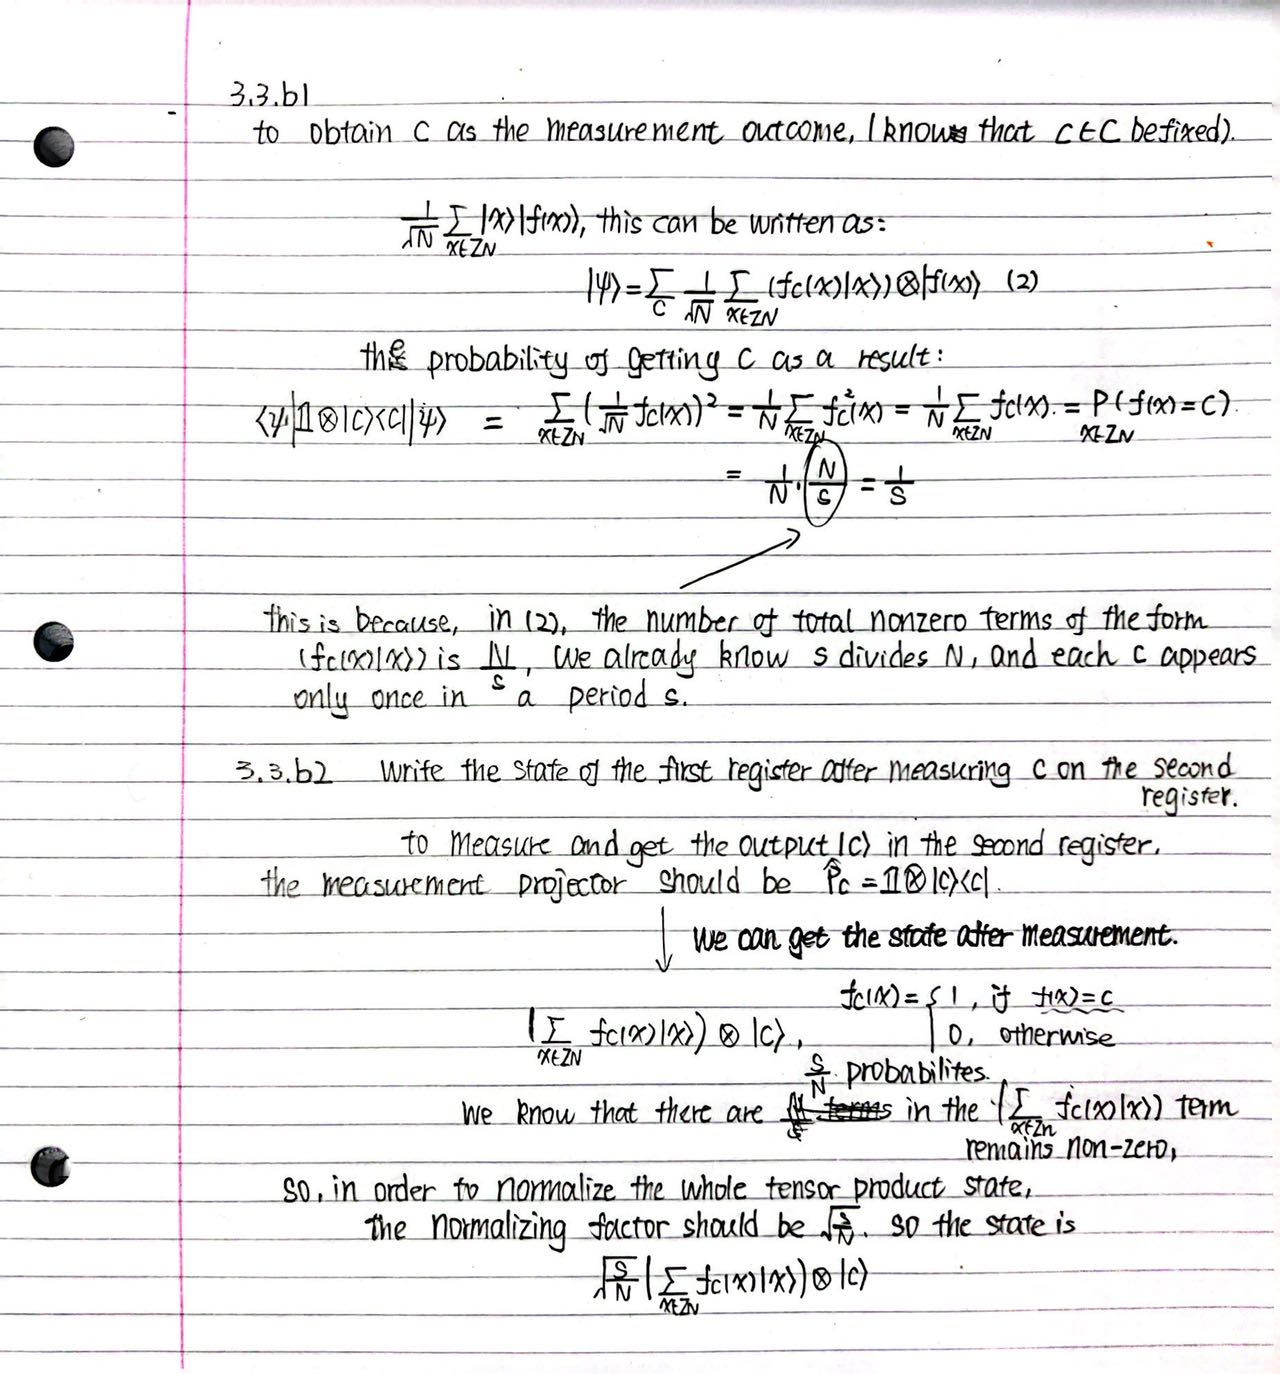 3.3.b1
to obtain C as the measurement outcome, (know that C∈C be fixed).
1/√N ∑_{x∈ZN} |x⟩|f(x)⟩, this can be written as:
|ψ⟩ = ∑_C 1/√N ∑_{x∈ZN} (fc(x)|x⟩)⊗|f(x)⟩ (2)
the probability of getting C as a result:
⟨ψ|𝟙⊗|C⟩⟨C||ψ⟩ = ∑_{x∈ZN} (1/√N fc(x))² = 1/N ∑_{x∈ZN} fc²(x) = 1/N ∑_{x∈ZN} fc(x). = P_{x∈ZN}(f(x)=C).
= 1/N · N/S = 1/S
this is because, in (2), the number of total nonzero terms of the form
(fc(x)|x⟩) is N/s, we already know s divides N, and each c appears
only once in a period s.
3.3.b2 Write the state of the first register after measuring C on the second
register.
to measure and get the output |C⟩ in the second register,
the measurement projector should be P̂c = 𝟙⊗|C⟩⟨C|.
↓ we can get the state after measurement.
fc(x) = { 1, if f(x)=c
(∑_{x∈ZN} fc(x)|x⟩) ⊗ |C⟩, 0, otherwise
S/N probabilites.
we know that there are terms in the (∑_{x∈Zn} fc(x)|x⟩) term
remains non-zero,
so, in order to normalize the whole tensor product state,
the normalizing factor should be √(S/N). so the state is
√(S/N) (∑_{x∈ZN} fc(x)|x⟩) ⊗ |C⟩